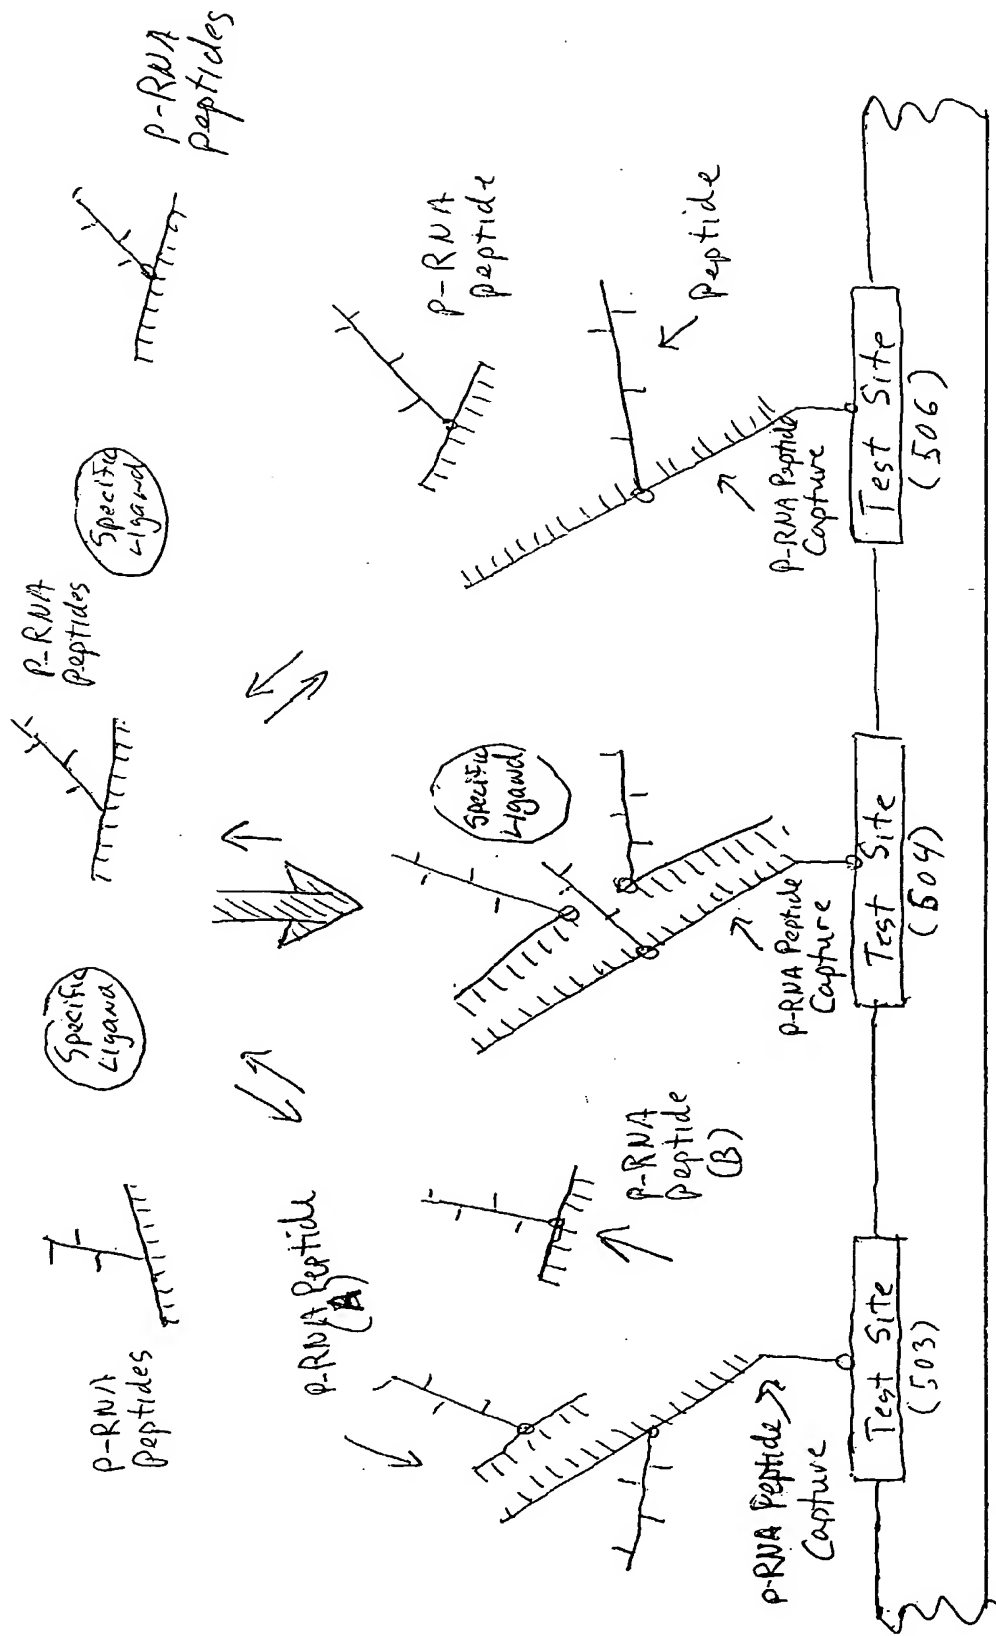 p-RNA
Peptides
Specific
Ligand
p-RNA
Peptides
Specific
Ligand
p-RNA
Peptides
p-RNA Peptide
(A)
p-RNA
peptide
(B)
Specific
Ligand
p-RNA
peptide
Peptide
p-RNA Peptide
Capture
p-RNA Peptide
Capture
p-RNA Peptide
Capture
Test Site
(503)
Test Site
(504)
Test Site
(506)